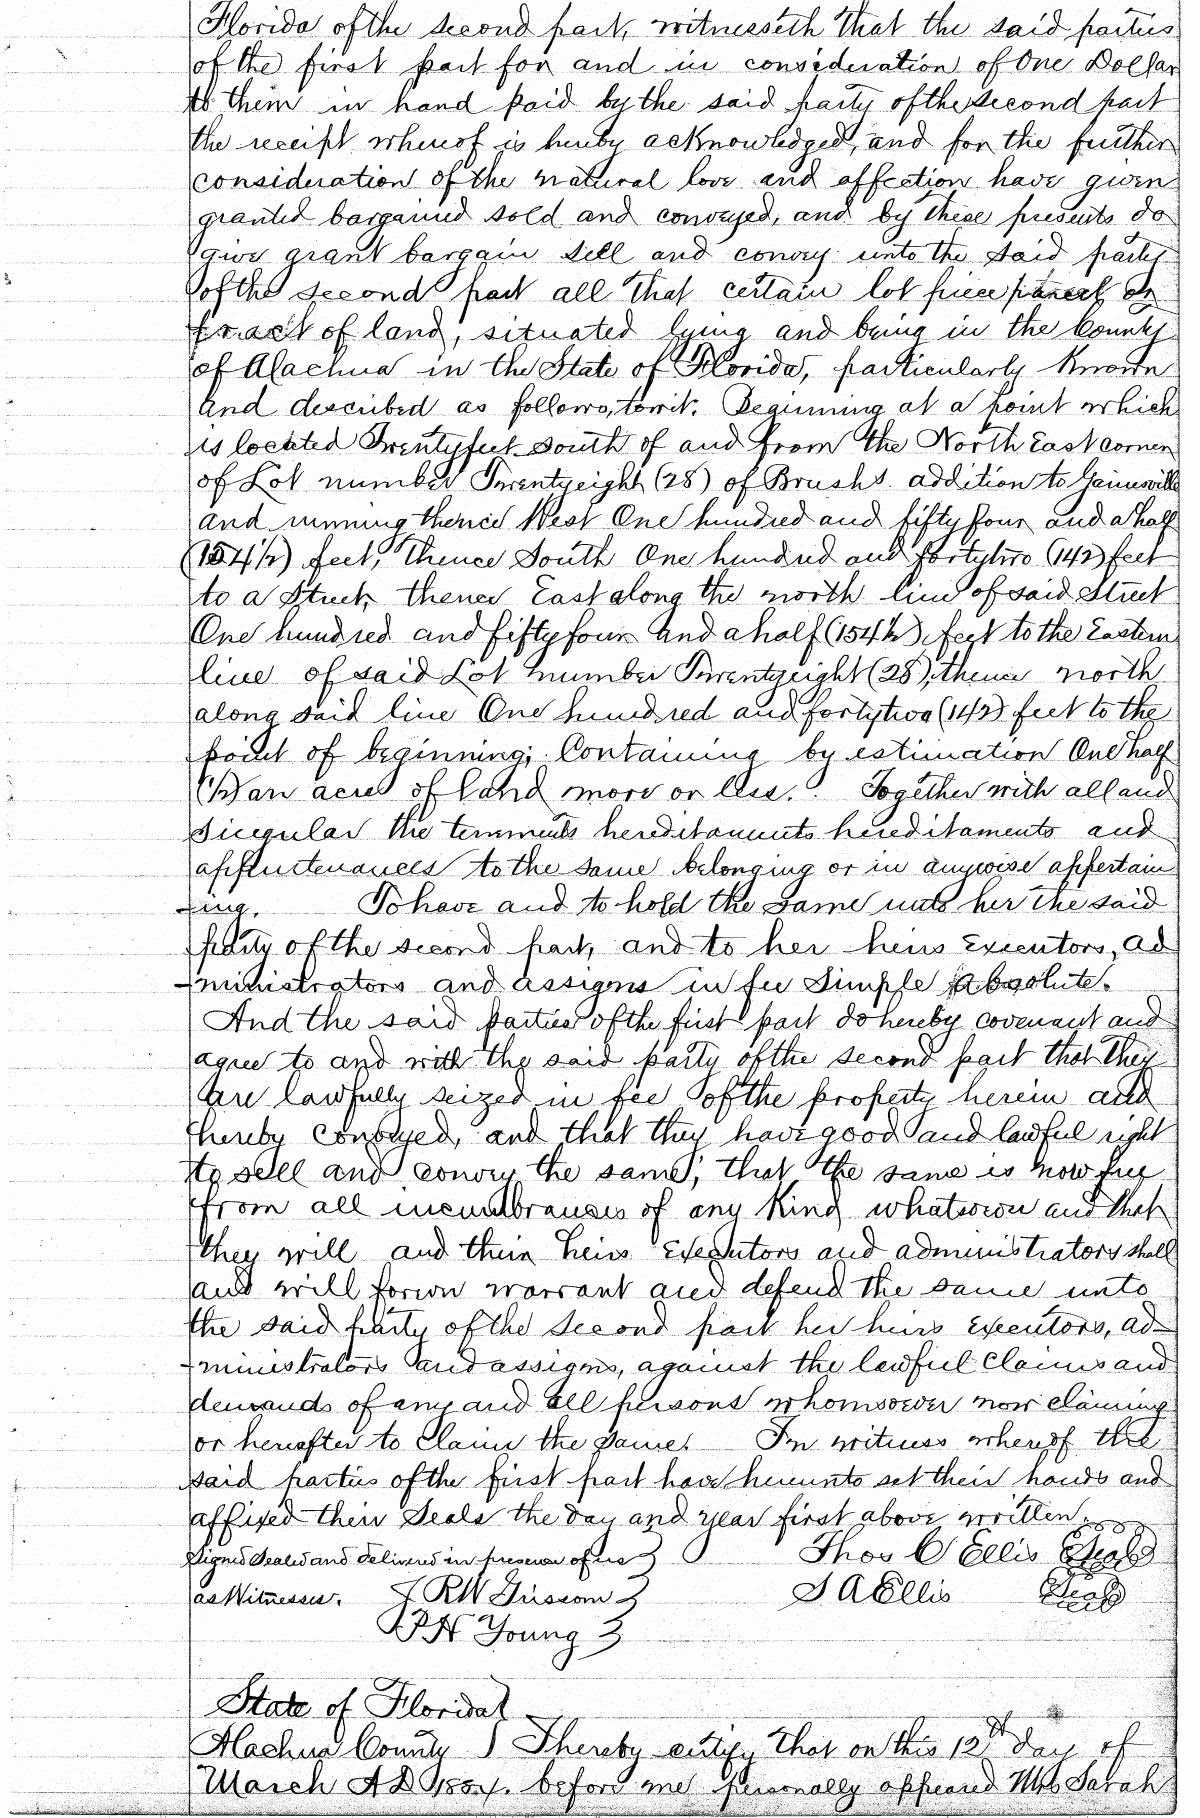 Florida of the second part, witnesseth that the said parties
of the first part for and in consideration of One Dollar
to them in hand paid by the said party of the second part
the receipt whereof is hereby acknowledged, and for the further
consideration of the natural love and affection have given
granted bargained sold and conveyed, and by these presents do
give grant bargain sell and convey unto the said party
of the second part all that certain lot piece parcel or
tract of land, situated lying and being in the County
of Alachua in the State of Florida, particularly known
and described as follows, towit. Beginning at a point which
is located Twentyfeet South of and from the North East corner
of Lot number Twentyeight (28) of Brushs addition to Gainesville
and running thence West One hundred and fifty four and a half
(154½) feet, thence South One hundred and fortytwo (142) feet
to a Street, thence East along the north line of said Street
One hundred and fifty four and a half (154½) feet to the Eastern
line of said Lot number Twentyeight (28), thence north
along said line One hundred and fortytwo (142) feet to the
point of beginning; Containing by estimation One half
(½) an acre of land more or less. Together with all and
singular the tennments hereditaments hereditaments and
appurtenances to the same belonging or in anywise appertain
-ing. To have and to hold the same unto her the said
party of the second part, and to her heirs Executors, ad
-ministrators and assigns in fee Simple absolute.
And the said parties of the first part do hereby covenant and
agree to and with the said party of the second part that they
are lawfully seized in fee of the property herein and
hereby conveyed, and that they have good and lawful right
to sell and convey the same; that the same is now free
from all incumbrances of any Kind whatsoever and that
they will and their heirs Executors and administrators shall
and will forever warrant and defend the same unto
the said party of the second part her heirs Executors, ad-
-ministrators and assigns, against the lawful Claims and
demands of any and all persons whomsoever now claiming
or hereafter to Claim the same. In witness whereof the
said parties of the first part have hereunto set their hands and
affixed their Seals the day and year first above written.
Signed Sealed and delivered in presence of us } Thos C Ellis Seal
as Witnesses. J RW Grissom } S A Ellis Seal
P H Young }
State of Florida }
Alachua County } I hereby certify that on this 12th day of
March A D 1884. before me personally appeared Mrs Sarah